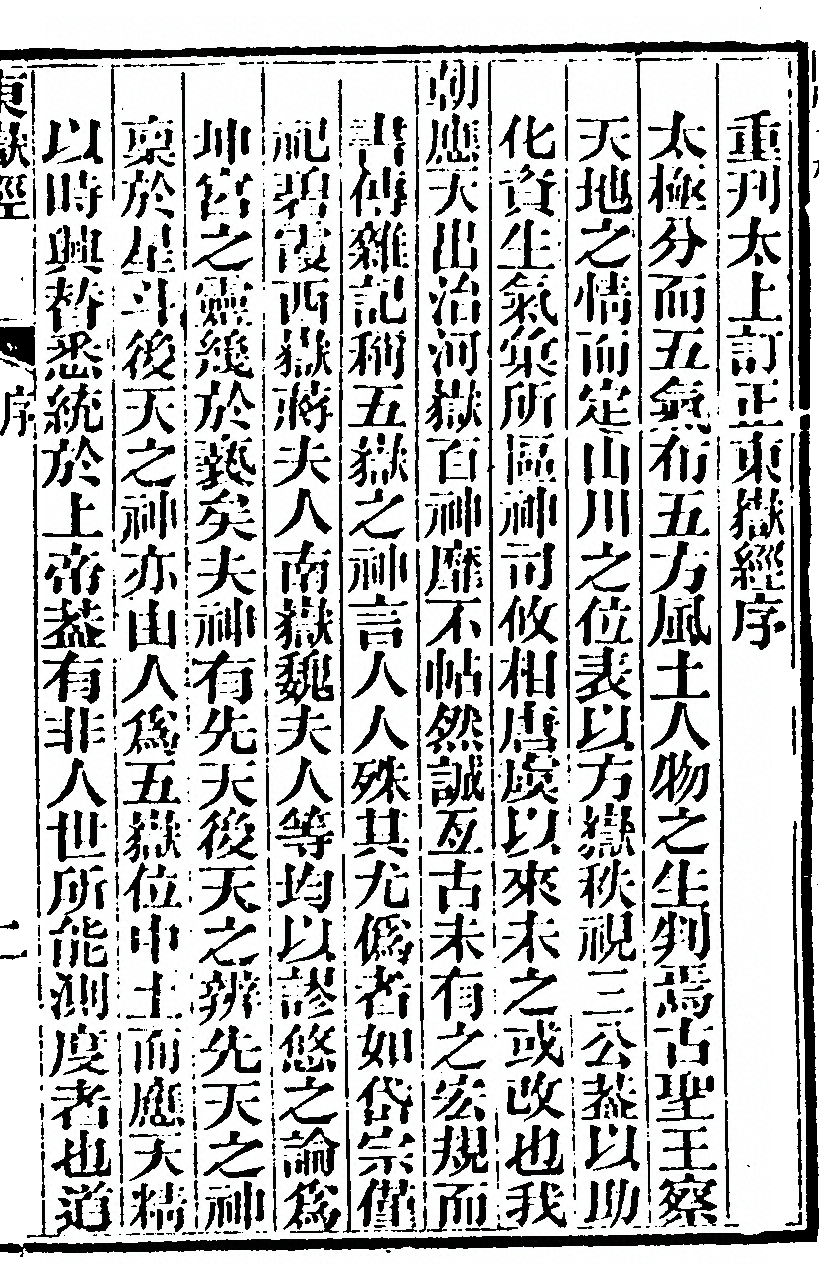 重刊太上訂正東嶽經序
太極分而五氣布五方風土人物之生判焉古聖王察
天地之情而定山川之位表以方嶽秩視三公蓋以助
化資生氣彙所區神司攸相唐虞以來未之或改也我
朝應天出治河嶽百神靡不帖然誠亙古未有之宏規而
書傳雜記稱五嶽之神言人人殊其尤僞者如岱宗僅
祀碧霞西嶽蔣夫人南嶽魏夫人等均以謬悠之論爲
坤宮之靈幾於褻矣夫神有先天後天之辨先天之神
稟於星斗後天之神亦由人爲五嶽位中土而應天精
以時興替悉統於上帝葢有非人世所能測度者也道
東嶽經
序
二